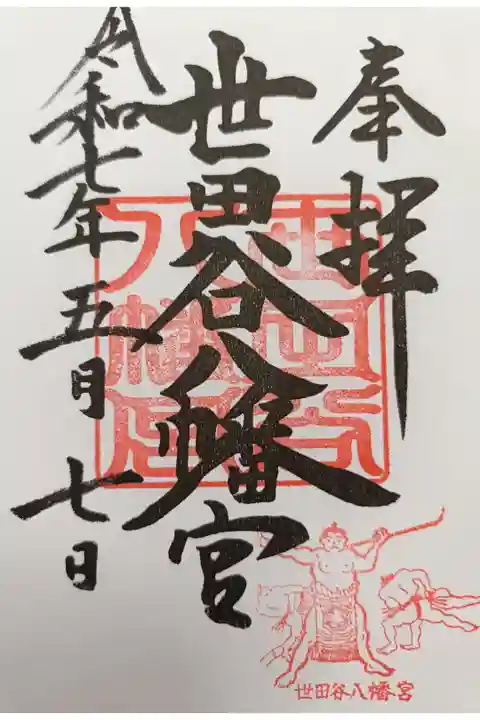 奉拝
世田谷八幡宮
令和七年五月七日
世田谷八幡宮
世田谷八幡宮